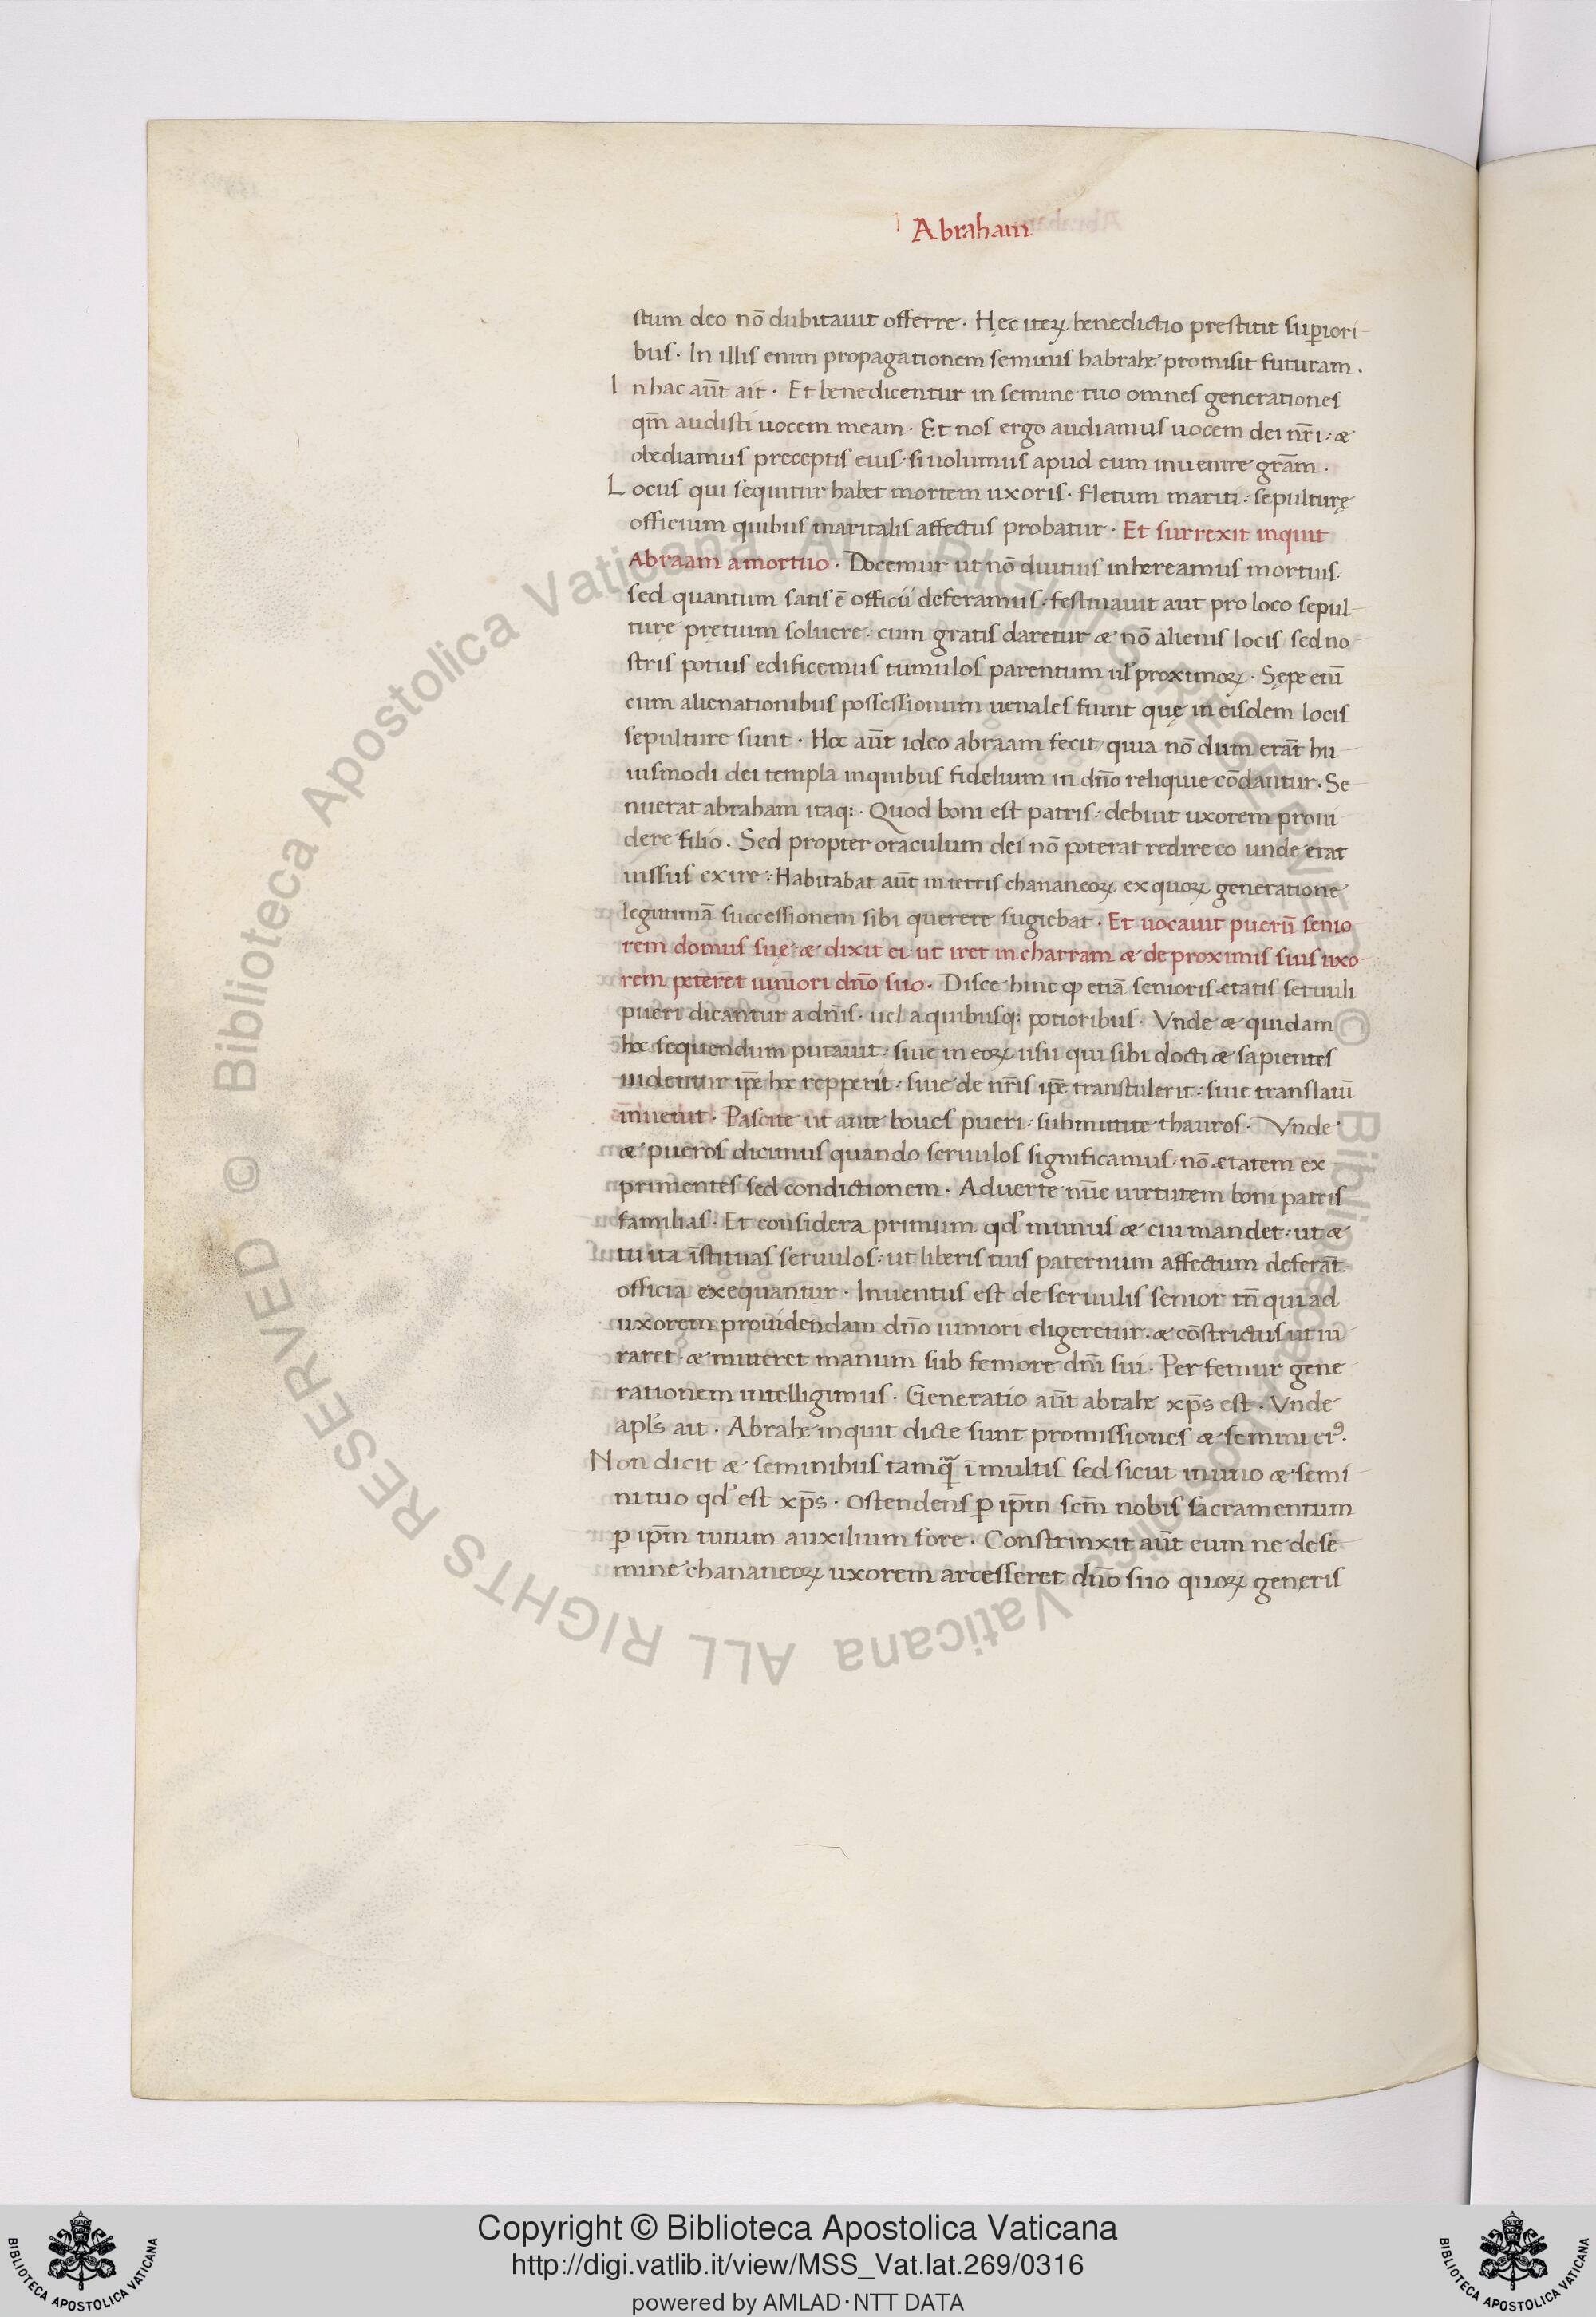 Abraham
stum deo nō dubitauit offerre · Hęc iteꝝ benedictio prestitit suꝑiori
bus · In illis enim propagationem seminis habrahe promisit futuram .
In hac aūt ait · Et benedicentur in semine tuo omnes generationes
qm̄ audisti uocem meam · Et nos ergo audiamus uocem dei nr̄i : æ
obediamus preceptis eius · si uolumus apud eum inuenire grām .
Locus qui sequitur habet mortem uxoris · fletum mariti : sepulturę
officium quibus maritalis affectus probatur · Et surrexit inquit
Abraam a mortuo · Docemur ut nō diutius inhereamus mortuis ·
sed quantum satis ē officii deferamus · festinauit aut pro loco sepul
ture pretium soluere : cum gratis daretur æ nō alienis locis sed no
stris potius edificemus tumulos parentum ul̓ proximoꝝ · Sępe enī
cum alienationibus possessionum uenales fiunt quę in eisdem locis
sepulture sunt · Hoc aūt ideo abraam fecit quia nō dum erāt hu
iusmodi dei templa in quibus fidelium in dn̄o reliquie cōdantur · Se
nuerat abraham itaq: · Quod boni est patris : debuit uxorem proui
dere filio . Sed propter oraculum dei nō poterat redire eo unde erat
iussus exire : Habitabat aūt in terris chananeoꝝ ex quoꝝ generatione
legitimā successionem sibi querere fugiebat · Et uocauit puerū senio
rem domus suę æ dixit ei · ut iret in charram æ de proximis suis uxo
rem peteret iuniori dn̄o suo · Disce hinc ꝙ etiā senioris ætatis seruuli
pueri dicantur a dn̄is · uel a quibusq: potioribus · Vnde æ quidam
hoc sequendum putauit · siue in eoꝝ usu qui sibi docti æ sapientes
uidentur ip̄e hoc repperit · siue de nr̄is ip̄e transtulerit : siue translatū
inuenit · Pascite ut ante boues pueri : submittite thauros · Vnde
æ pueros dicimus quando seruulos significamus · nō ætatem ex
primentes sed condictionem · Aduerte nūc uirtutem boni patris
familias · Et considera primum qd̓ munus æ cui mandet · ut æ
tu ita īstituas seruulos : ut liberis tuis paternum affectum deferāt ·
officia exequantur · Inuentus est de seruulis senior tn̄ qui ad
uxorem prouidendam dn̄o iuniori eligeretur · æ cōstrictus ut iu
raret · æ mitteret manum sub femore dn̄i sui · Per femur gene
rationem intelligimus · Generatio aūt abrahe xp̄s est · Vnde
apl̓s ait · Abrahe inquit dicte sunt promissiones æ semini eiꝰ ·
Non dicit æ seminibus tamq̄ ī multis sed sicut in uno æ semi
ni tuo qd̓ est xp̄s · Ostendens ꝑ ip̄m scm̄ nobis sacramentum
ꝑ ip̄m tutum auxilium fore · Constrinxit aūt eum ne de se
mine chananeoꝝ uxorem arcesseret dn̄o suo quoꝝ generis
© Biblioteca Apostolica Vaticana ALL RIGHTS RESERVED © Biblioteca Apostolica Vaticana ALL RIGHTS RESERVED
Copyright © Biblioteca Apostolica Vaticana
http://digi.vatlib.it/view/MSS_Vat.lat.269/0316
powered by AMLAD·NTT DATA
BIBLIOTECA APOSTOLICA VATICANA
BIBLIOTECA APOSTOLICA VATICANA